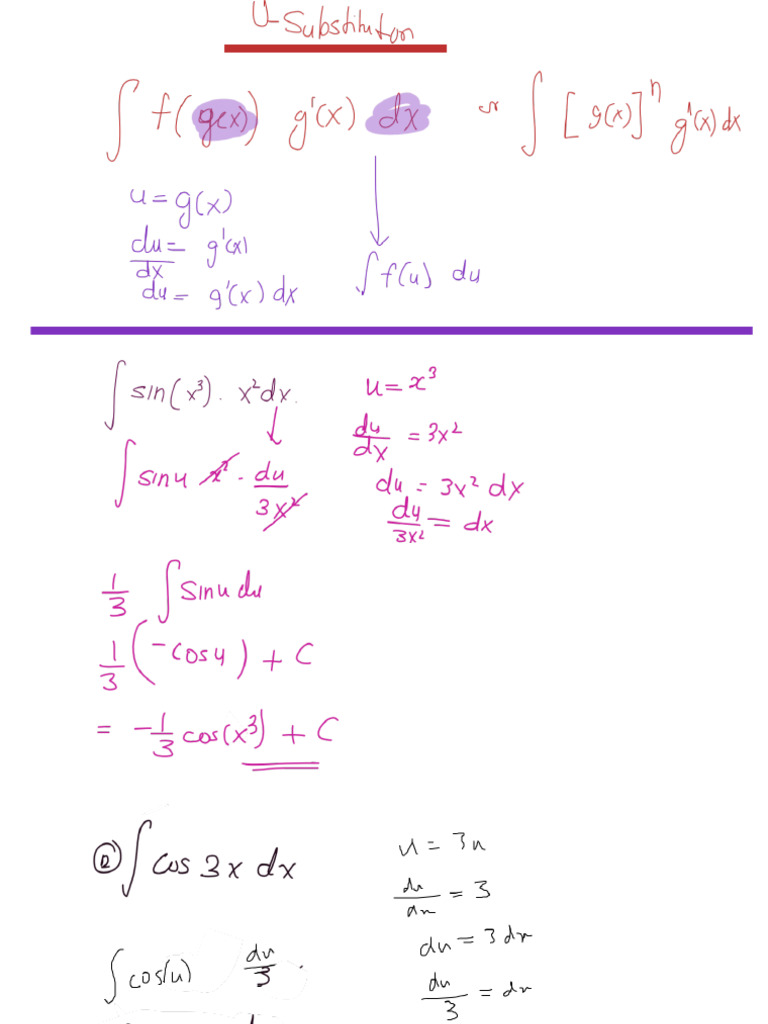 U-Substitution
∫ f(g(x)) g'(x) dx or ∫ [g(x)]^n g'(x) dx
u = g(x)
du/dx = g'(x)
du = g'(x) dx
∫ f(u) du
∫ sin(x³) · x² dx.
u = x³
du/dx = 3x²
∫ sin u x² · du/3x²
du = 3x² dx
du/3x² = dx
1/3 ∫ sin u du
1/3 (-cos u) + C
= -1/3 cos(x³) + C
② ∫ cos 3x dx
u = 3x
du/dx = 3
du = 3 dx
∫ cos(u) du/3 .
du/3 = dx